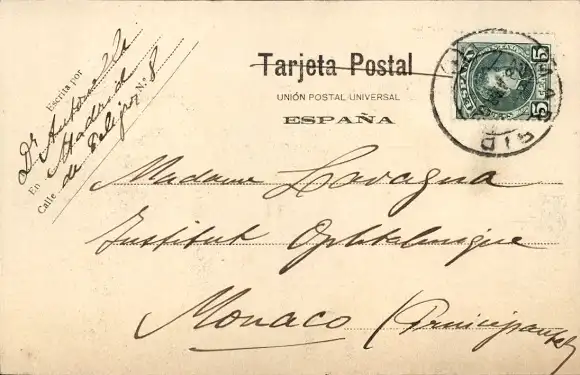 Escrita por Dr Antonilla
En Madrid
Calle de Peligros N.º 8
Tarjeta Postal
UNIÓN POSTAL UNIVERSAL
ESPAÑA
5 5
MADRID
Madame Lavagna
Institut Ophtalmique
Monaco (Principauté)